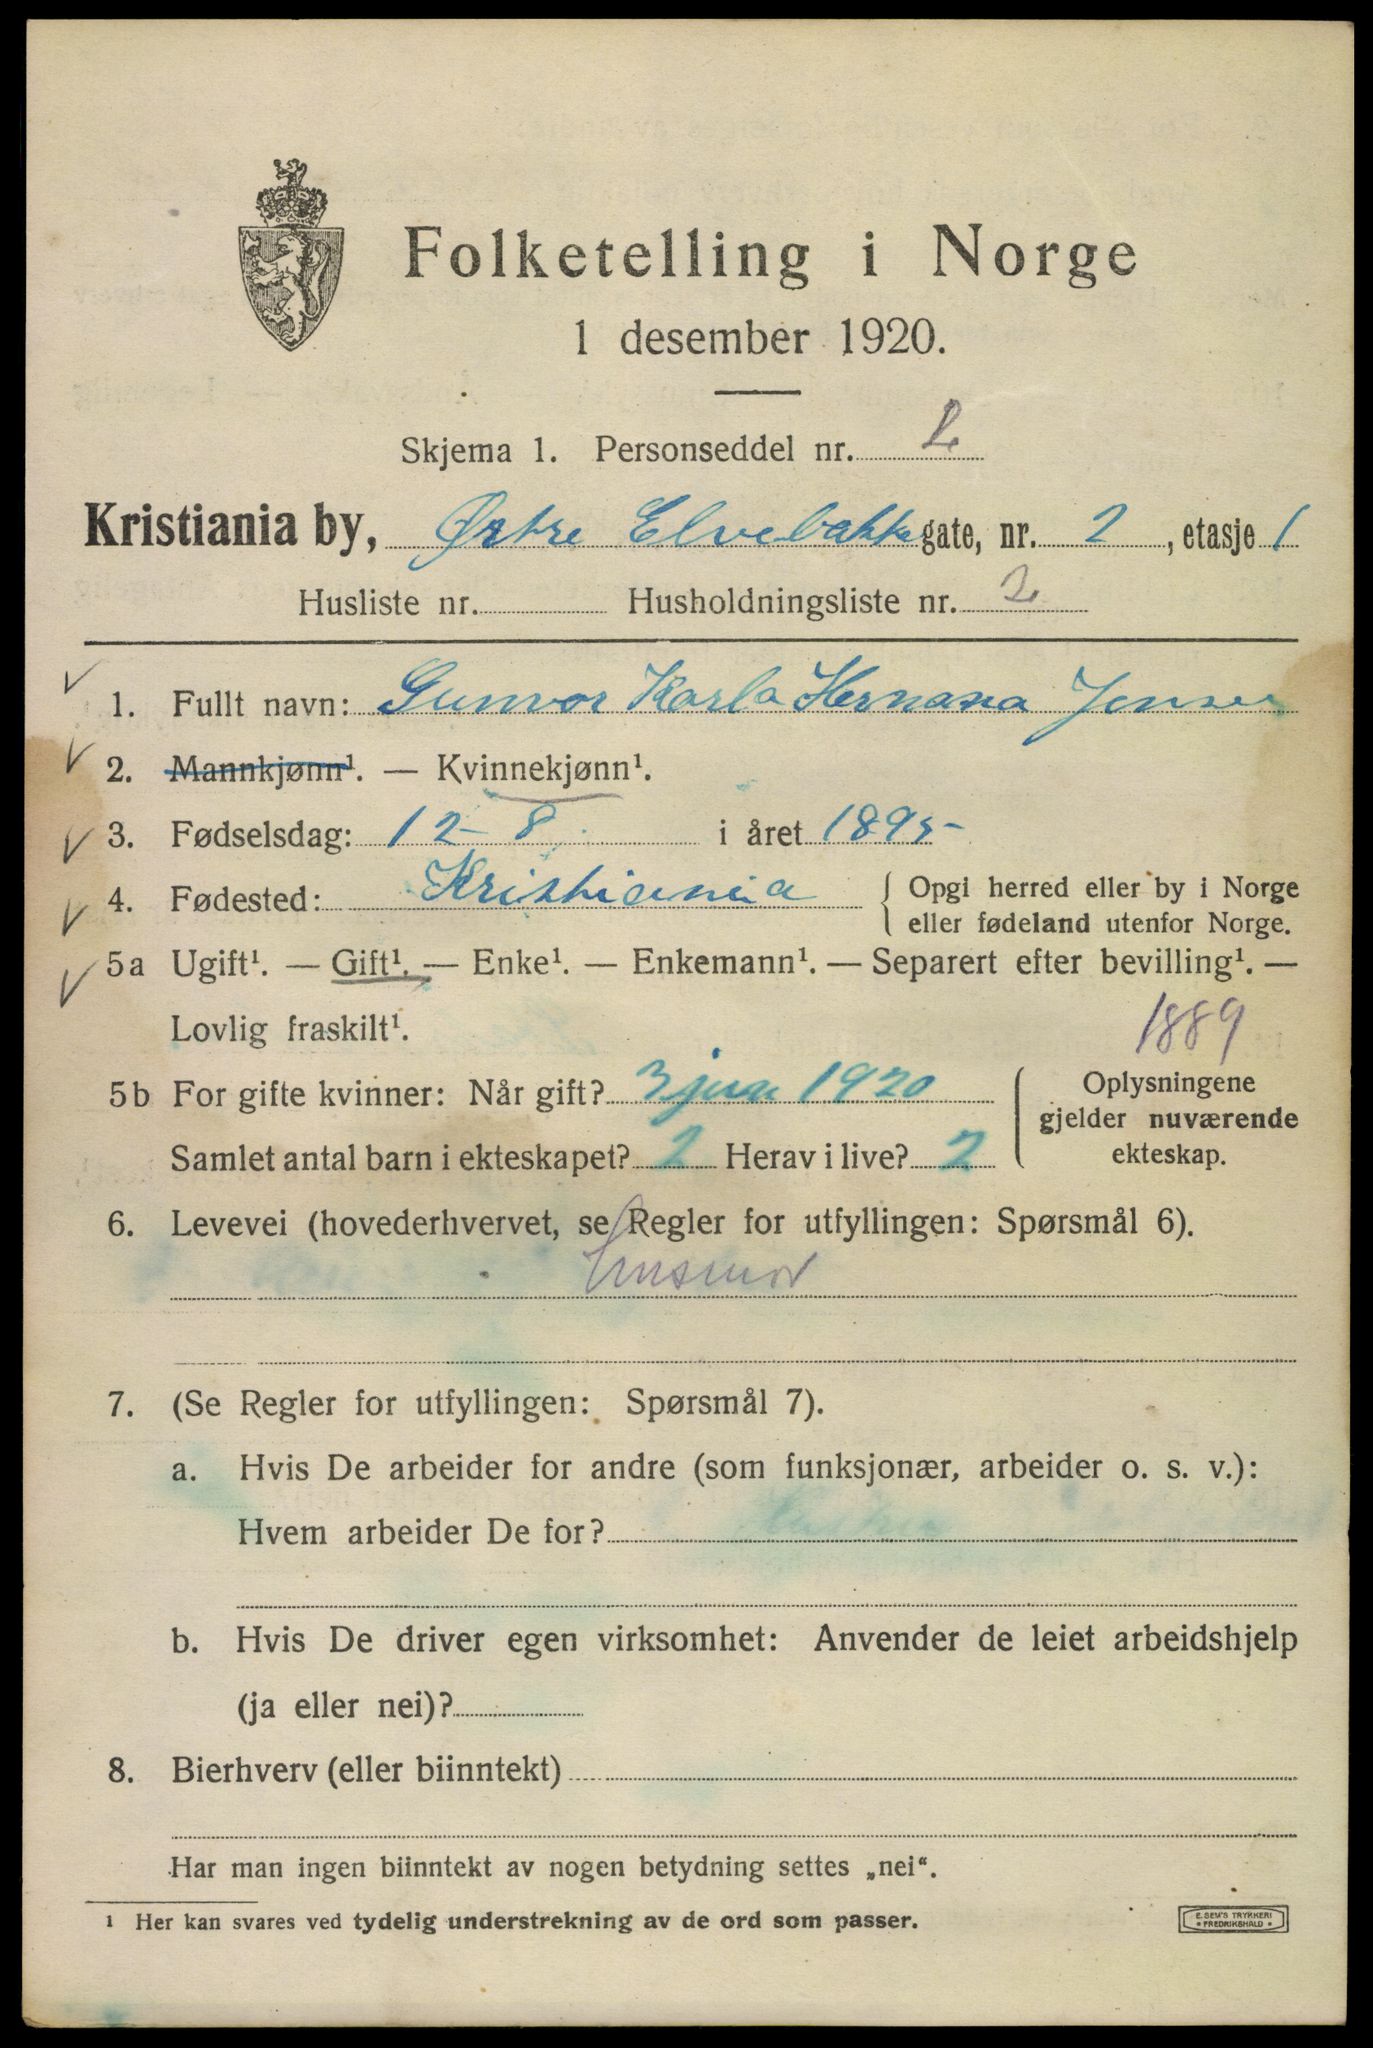 Folketelling i Norge
1 desember 1920.
Skjema 1. Personseddel nr. 2
Kristiania by, Østre Elvebakke gate, nr. 2, etasje 1
Husliste nr. Husholdningsliste nr. 2
1. Fullt navn: Gunvor Karla Hernana Jensen
2. Mannkjønn¹. — Kvinnekjønn¹.
3. Fødselsdag: 12-8 i året 1895-
4. Fødested: Kristiania { Opgi herred eller by i Norge
eller fødeland utenfor Norge.
5a Ugift¹. — Gift¹. — Enke¹. — Enkemann¹. — Separert efter bevilling¹. —
Lovlig fraskilt¹.
1889
5b For gifte kvinner: Når gift? 3 juni 1920
Samlet antal barn i ekteskapet? 2 Herav i live? 2
Oplysningene
gjelder nuværende
ekteskap.
6. Levevei (hovederhvervet, se Regler for utfyllingen: Spørsmål 6).
husmor
7. (Se Regler for utfyllingen: Spørsmål 7).
a. Hvis De arbeider for andre (som funksjonær, arbeider o. s. v.):
Hvem arbeider De for?
b. Hvis De driver egen virksomhet: Anvender de leiet arbeidshjelp
(ja eller nei)?
8. Bierhverv (eller biinntekt)
Har man ingen biinntekt av nogen betydning settes „nei“.
¹ Her kan svares ved tydelig understrekning av de ord som passer.
E. SEM'S TRYKKERI
• FREDRIKSHALD •